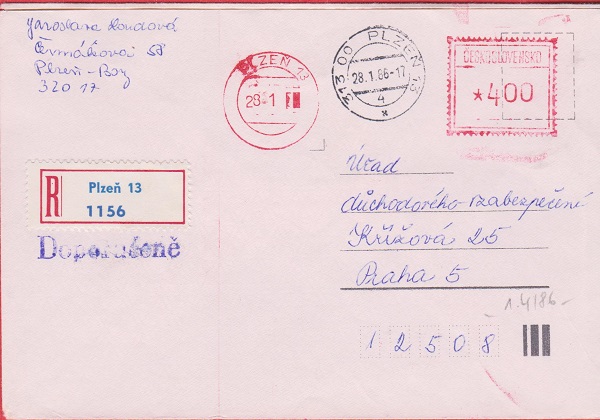 Jaroslava Loudová
Čermákova 58
Plzeň-Bory
320 17
PLZEŇ 13
28.1
313 00 PLZEŇ 13
28.1.86-17
4
*
ČESKOSLOVENSKO
*400
R
Plzeň 13
1156
Doporučeně
Úřad
důchodového zabezpečení
Křížová 25
Praha 5
1.4/86-
12508